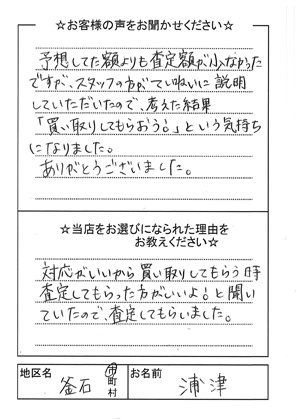 ☆お客様の声をお聞かせください☆
予想してた額よりも査定額が少なかった
ですが、スタッフの方がてい寧いに説明
していただいたので、考えた結果
「買い取りしてもらおう!」という気持ち
になりました。
ありがとうございました。
☆当店をお選びになられた理由を
お教えください☆
対応がいいから買い取りしてもらう時
査定してもらった方がいいよ!と聞い
ていたので、査定してもらいました。
地区名 釜石 市町村 お名前 浦津